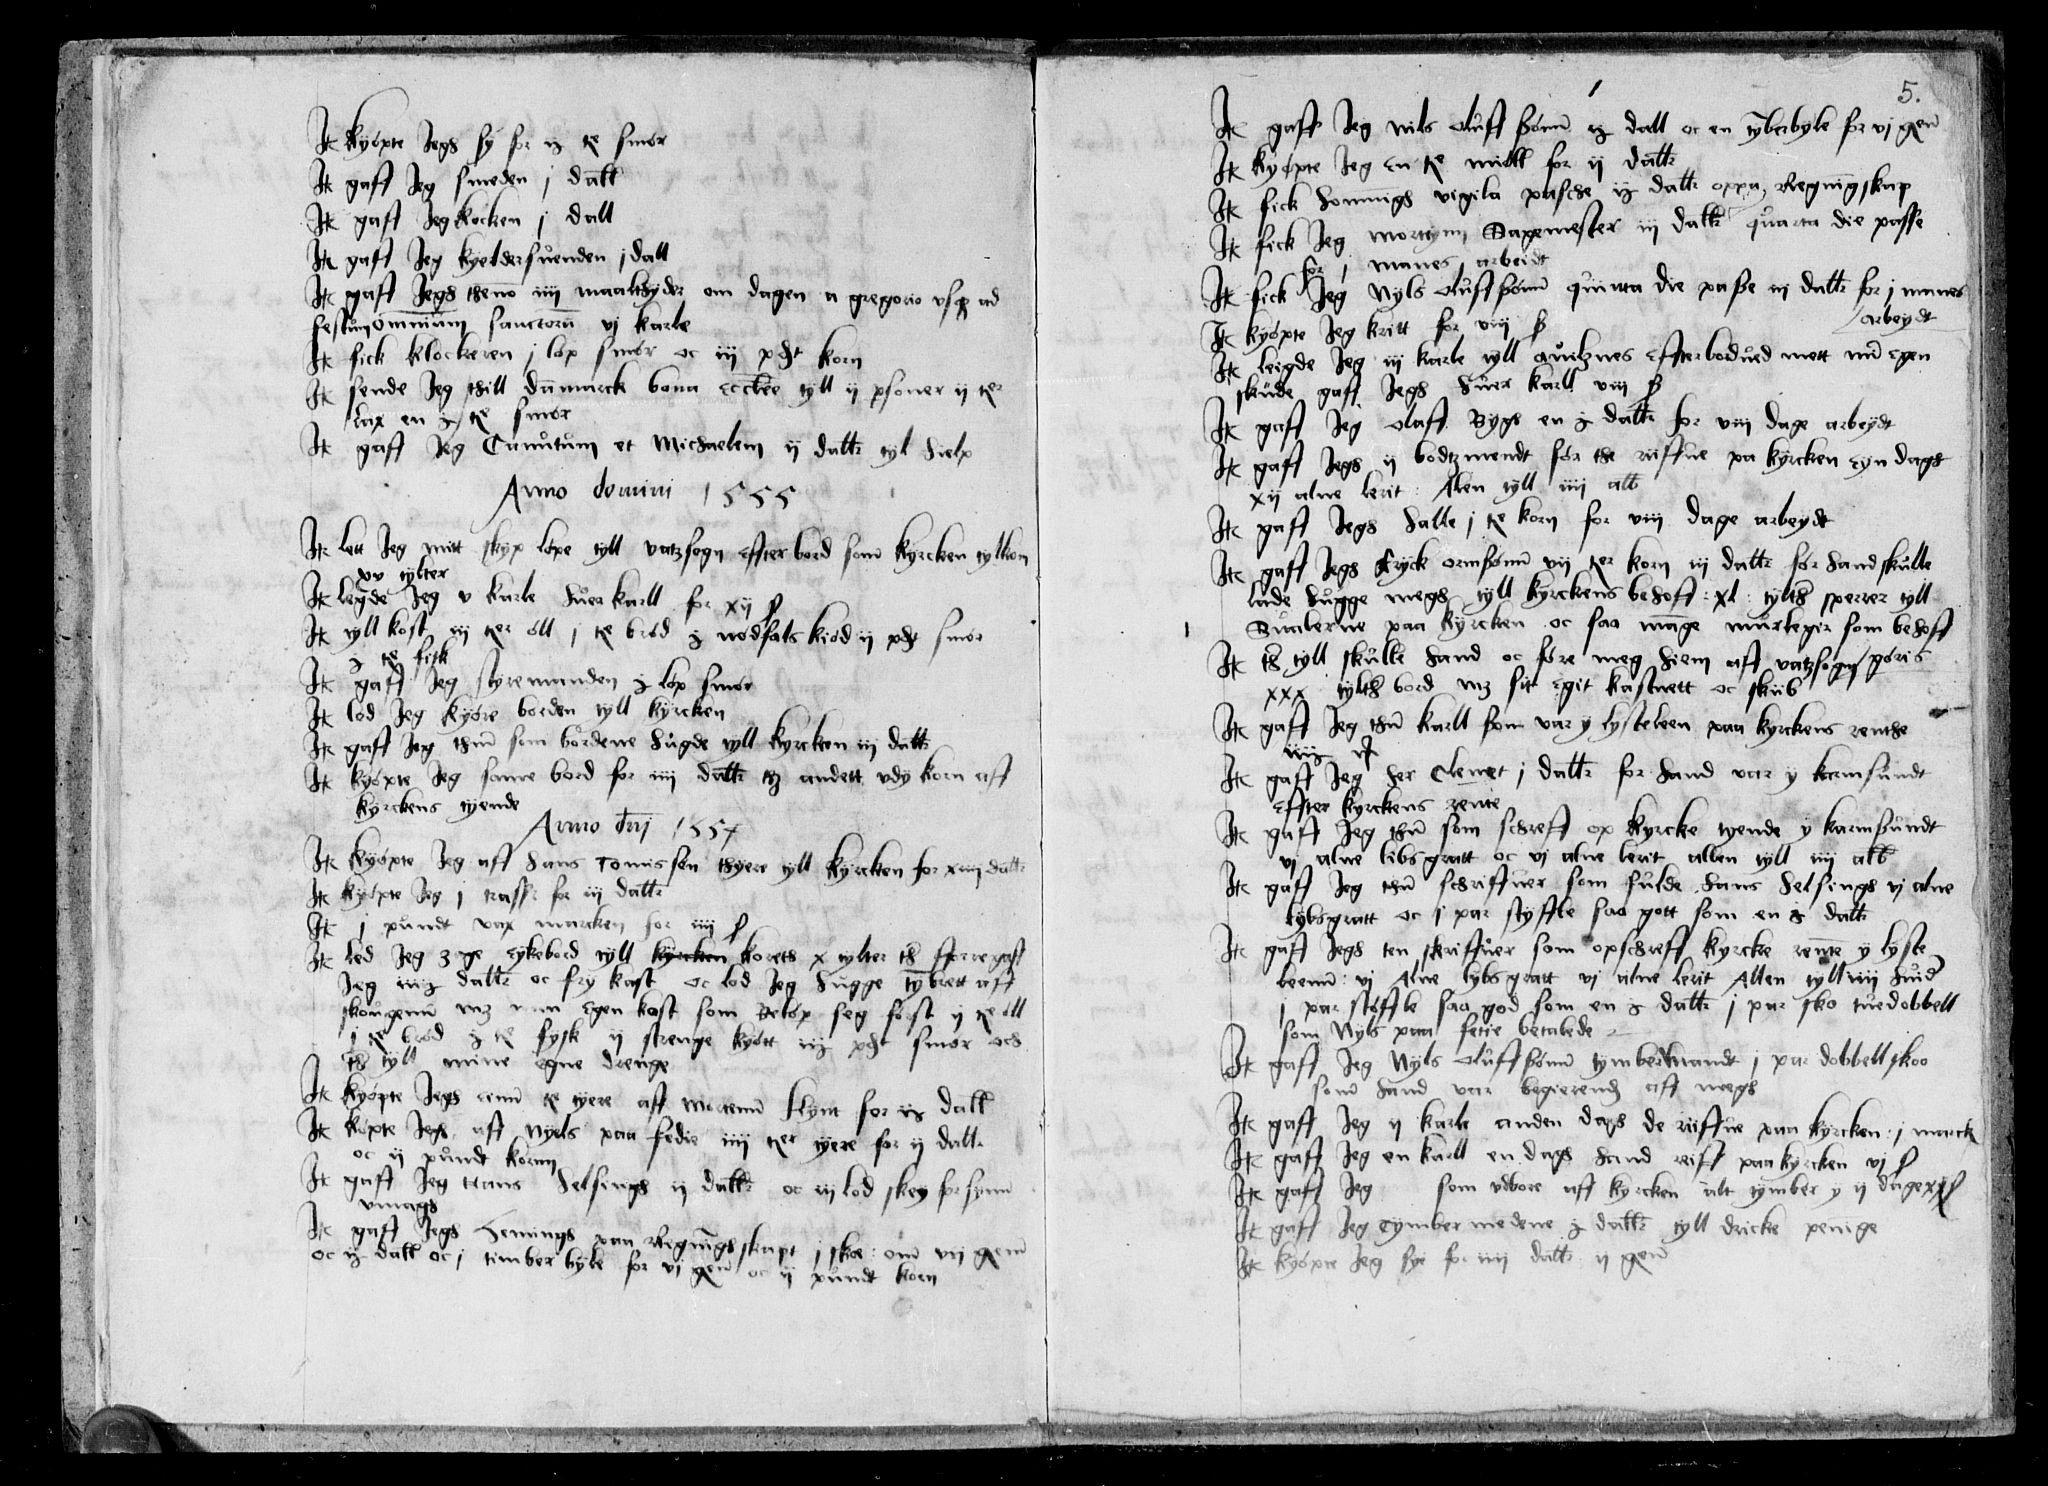 Jt kyópte Jegh sy for ij te smór
Jt gaff Jeg smeden j dall
Jt gaff Jeg kocken j dall
Jt gaff Jeg kyeldersuenden j dall
Jt gaff Jegh themo iiij maalthyder om dagen a gregorio usq ad
festum omnium sanctoru vj karle
Jt fick klockeren j lóp smór oc iij pdt korn
Jt sende Jeg thill danmarck bona ecclee tyll ij psoner ij ter
lax en te smór
Jt gaff Jeg Canutum et Michaelem ij dallr tyl hielp
Anno domini 1555
Jt lett Jeg mitt skyp lópe tyll vatzsogn effter bord som kyrcken tyllkom
xv tylter
Jt legde Jeg v karle huer karll for xij ß
Jt tyll kost iij ter óll j te bród nódfals kiód ij pdt smór
te fisk
Jt gaff Jeg styremanden lóp smór
Jt lod Jeg kyóre borden tyll kyrcken
Jt gaff Jeg thm som bordene hugde tyll kyrcken iij dallr
Jt kyópte Jeg same bord for iiij dallr th andett udy korn aff
kyrckens tyende
Anno dnj 1557
Jt kyópte Jeg aff hans tomissen thyere tyll kyrcken for xiiij dallr
Jt kyópte Jeg j trasse for iij dallr
Jt j pundt vax marcken for iiij ß
Jt lod Jeg ege eykebord tyll kyrcken koreth x tylter th fforre gaff
Jeg dallr oc fry kost oc lod Jeg hugge tybrett aff
skougenn mz min egen kost som belóp seg fórst ij te óll
j te bród te fysk ij strenge kyótt pdt smór och
th tyll mine egne drenge
Jt kyópte Jegh enn te tyere aff mortenn flynt for dall
Jt kópte Jegh aff Nyels paa fedie iiij ter tyere for ij dallr
oc ij pundt kornn
Jt gaff Jeg Hans helsingh ij dallr oc iij lod skey for synn
umagh
Jt gaff Jegh Hemingh paa Regningskapt j skoe om vij gem
oc dall oc j timber byle for vj gem oc ij pundt korn
5.
Jt gaff Jeg nils oluff sónn dall oc en tymberbyle for vj gem
Jt kyópte Jeg en te miell for ij dallr
Jt fick hommingh vigilia pasche dallr oppa Regningskap
Jt fick Jeg mortynn Sagemester iij dallr quarta die passe
for j manes arbeidt
Jt fick Jeg Nyls oluffsónn quinta die pasße iij dallr for j manes
arbeydt
Jt kyópte Jeg kritt for viij ß
Jt leigde Jeg iij karle tyll auilznes effter bodued mett min egen
skude gaff Jegh huer karll viij ß
Jt gaff Jeg olaff Rygh en dallr for viij dage arbeydt
Jt gaff Jegh ij bodtzmendt for the riffue pa kyrcken eyn dagh
xij alne lerit Alen tyll iiij all
Jt gaff Jegh halle j te korn for viij dage arbeydt
Jt gaff Jegh Eryck ormsónn vij ter korn iij dallr for hand skulle
lade hugge megh tyll kyrckens behoff xl tylth sperrer tyll
Sualerne paa kyrcken oc saa mange murlegir som behoff
góris
Jt th tyll skulle hand oc fóre meg hiem aff vatzsogn
xxx tylth bord mz sit egit kastnett oc skiib
Jt gaff Jeg thm karll som var y lysteleen paa kyrckens renthe
Jt gaff Jeg her Clemet j dallr for hand var y karmsundt
effter kyrckens rente
Jt gaff Jeg thm som schreff op kyrcke tyende y karmsundt
vj alne libsgratt oc vj alne lerit allen tyll iiij all
Jt gaff Jeg thm schriffuer som fulde hans helsingh vj alne
lybsgratt oc j par styffle saa gott som en dallr
Jt gaff Jegh ten skriffuer som opschreff kyrcke rennte y lyste
leenn vj Alne lybsgratt vj alne lerit Allen tyll iiij huid
j par stóffle saa god som en dallr j par sko tuedobbell
som Nyls paa fetie betalede
Jt gaff Jeg Nyls oluffsónn tymbermandt j par dobbell skoo
som hand var begierendh aff megh
Jt gaff Jeg ij karle anden dagh de riffue paa kyrcken j marck
Jt gaff Jeg en karll en dagh hand reiff paa kyrcken vj ß
Jt gaff Jeg som udbore aff kyrcken alt tymber y ij dage xij ß
Jt gaff Jeg tymbermedene dallr tyll dricke penige
Jt kyópte Jeg sye for iiij dallr ij gem